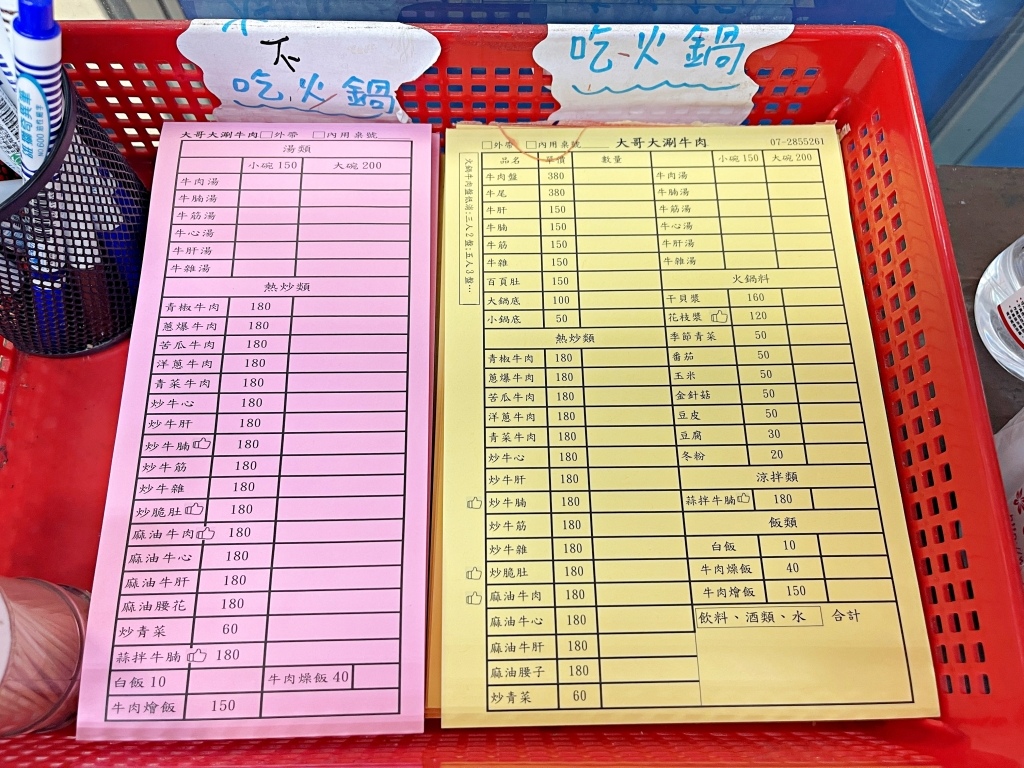 不
吃火鍋
大哥大涮牛肉 □外帶 □內用桌號
湯類
小碗150 大碗200
牛肉湯
牛腩湯
牛筋湯
牛心湯
牛肝湯
牛雜湯
熱炒類
青椒牛肉 180
蔥爆牛肉 180
苦瓜牛肉 180
洋蔥牛肉 180
青菜牛肉 180
炒牛心 180
炒牛肝 180
炒牛腩 180
炒牛筋 180
炒牛雜 180
炒脆肚 180
麻油牛肉 180
麻油牛心 180
麻油牛肝 180
麻油腰花 180
炒青菜 60
蒜拌牛腩 180
白飯10 牛肉燥飯40
牛肉燴飯 150
吃火鍋
□外帶 □內用桌號 大哥大涮牛肉 07-2855261
火鍋牛肉盤低消:三人2盤;五人3盤…
品名 單價 數量
牛肉盤 380
牛尾 380
牛肝 150
牛腩 150
牛筋 150
牛雜 150
百頁肚 150
大鍋底 100
小鍋底 50
熱炒類
青椒牛肉 180
蔥爆牛肉 180
苦瓜牛肉 180
洋蔥牛肉 180
青菜牛肉 180
炒牛心 180
炒牛肝 180
炒牛腩 180
炒牛筋 180
炒牛雜 180
炒脆肚 180
麻油牛肉 180
麻油牛心 180
麻油牛肝 180
麻油腰子 180
炒青菜 60
小碗150 大碗200
牛肉湯
牛腩湯
牛筋湯
牛心湯
牛肝湯
牛雜湯
火鍋料
干貝漿 160
花枝漿 120
季節青菜 50
番茄 50
玉米 50
金針菇 50
豆皮 50
豆腐 30
冬粉 20
涼拌類
蒜拌牛腩 180
飯類
白飯 10
牛肉燥飯 40
牛肉燴飯 150
飲料、酒類、水 合計